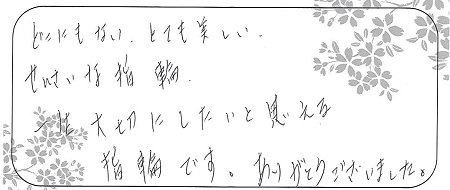 どこにもない、とても美しい、
せんさいな指輪.
一生大切にしたいと思える
指輪です。ありがとうございました。